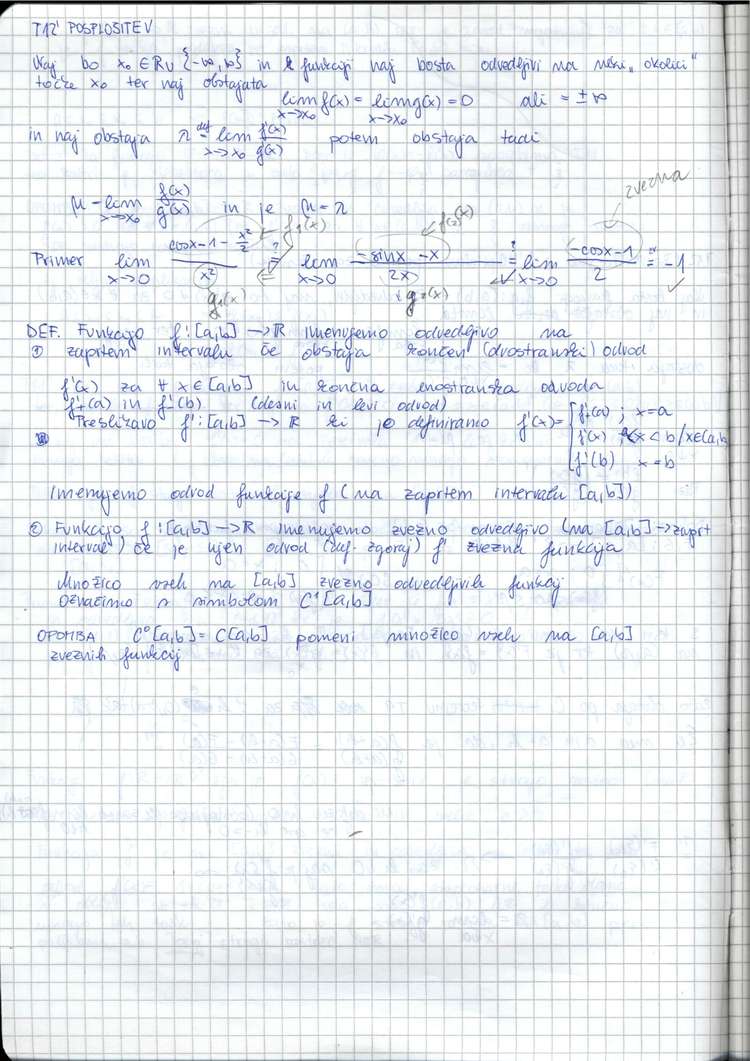 T12' POSPLOŠITEV
Naj bo x₀ ∈ ℝ ∪ {-∞, ∞} in funkciji naj bosta odvedljivi na neki "okolici"
točke x₀ ter naj obstajata
lim x→x₀ f(x) = lim x→x₀ g(x) = 0 ali = ±∞
in naj obstaja λ def= lim x→x₀ f'(x)/g'(x) potem obstaja tudi
μ = lim x→x₀ f(x)/g(x) in je μ = λ
zvezna
f₁(x) f₂(x)
Primer lim x→0 (cosx - 1 - x²/2)/x² ?= lim x→0 (-sinx - x)/2x ?= lim x→0 (-cosx - 1)/2 = -1
g₁(x) g₂(x)
DEF. Funkcijo f: [a,b] → ℝ imenujemo odvedljivo na
① zaprtem intervalu če obstaja končen (dvostranski) odvod
f'(x) za ∀ x ∈ [a,b] in končna enostranska odvoda
f'₊(a) in f'₋(b) (desni in levi odvod)
Preslikavo f': [a,b] → ℝ ki je definiramo f'(x) = { f'₊(a) ; x = a
f'(x) ; a<x < b / x∈(a,b
f'₋(b) x = b
Imenujemo odvod funkcije f (na zaprtem intervalu [a,b])
② Funkcijo f: [a,b] → ℝ imenujemo zvezno odvedljivo (na [a,b] → zaprt
interval) če je njen odvod (def. zgoraj) f' zvezna funkcija
Množico vseh na [a,b] zvezno odvedljivih funkcij
označimo s simbolom C¹[a,b]
OPOMBA C⁰[a,b] = C[a,b] pomeni množico vseh na [a,b]
zveznih funkcij